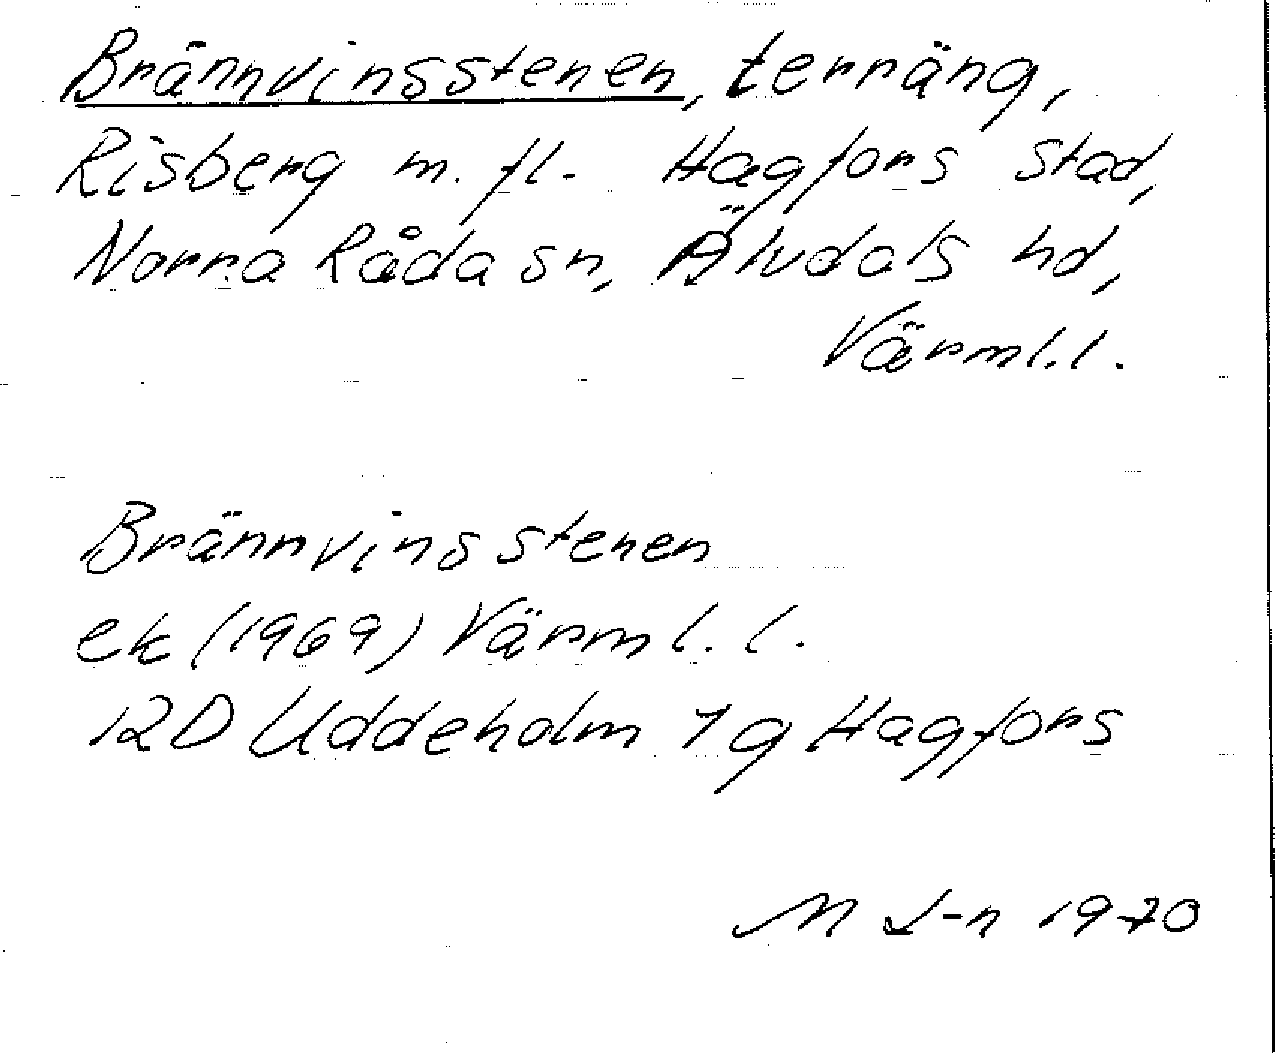 Brännvinsstenen, terräng,
Risberg m. fl. Hagfors stad,
Norra Råda sn, Älvdals hd,
Värml.l.
Brännvinsstenen
ek (1969) Värml. l.
12D Uddeholm 7g Hagfors
M L-n 1970